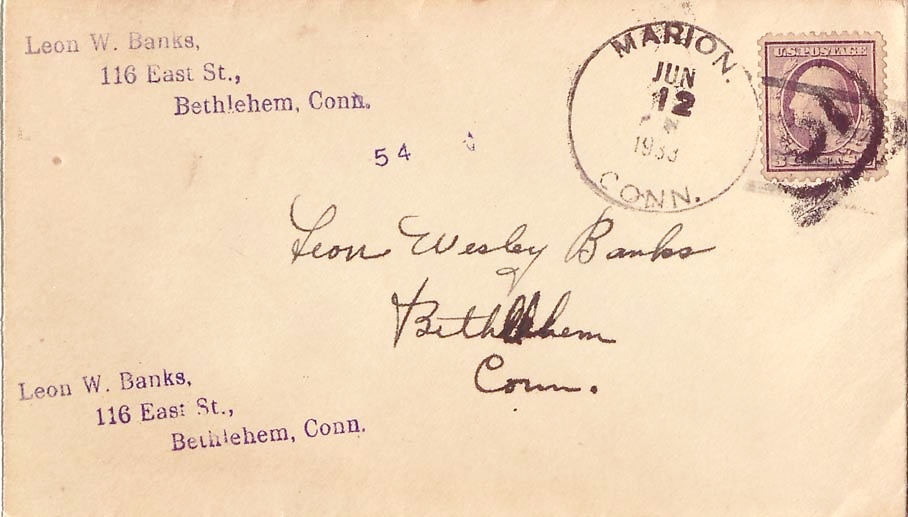 Leon W. Banks,
116 East St.,
Bethlehem, Conn.
54
MARION.
JUN
12
1933
CONN.
U.S. POSTAGE
Leon Wesley Banks
Bethlehem
Conn.
Leon W. Banks,
116 East St.,
Bethlehem, Conn.